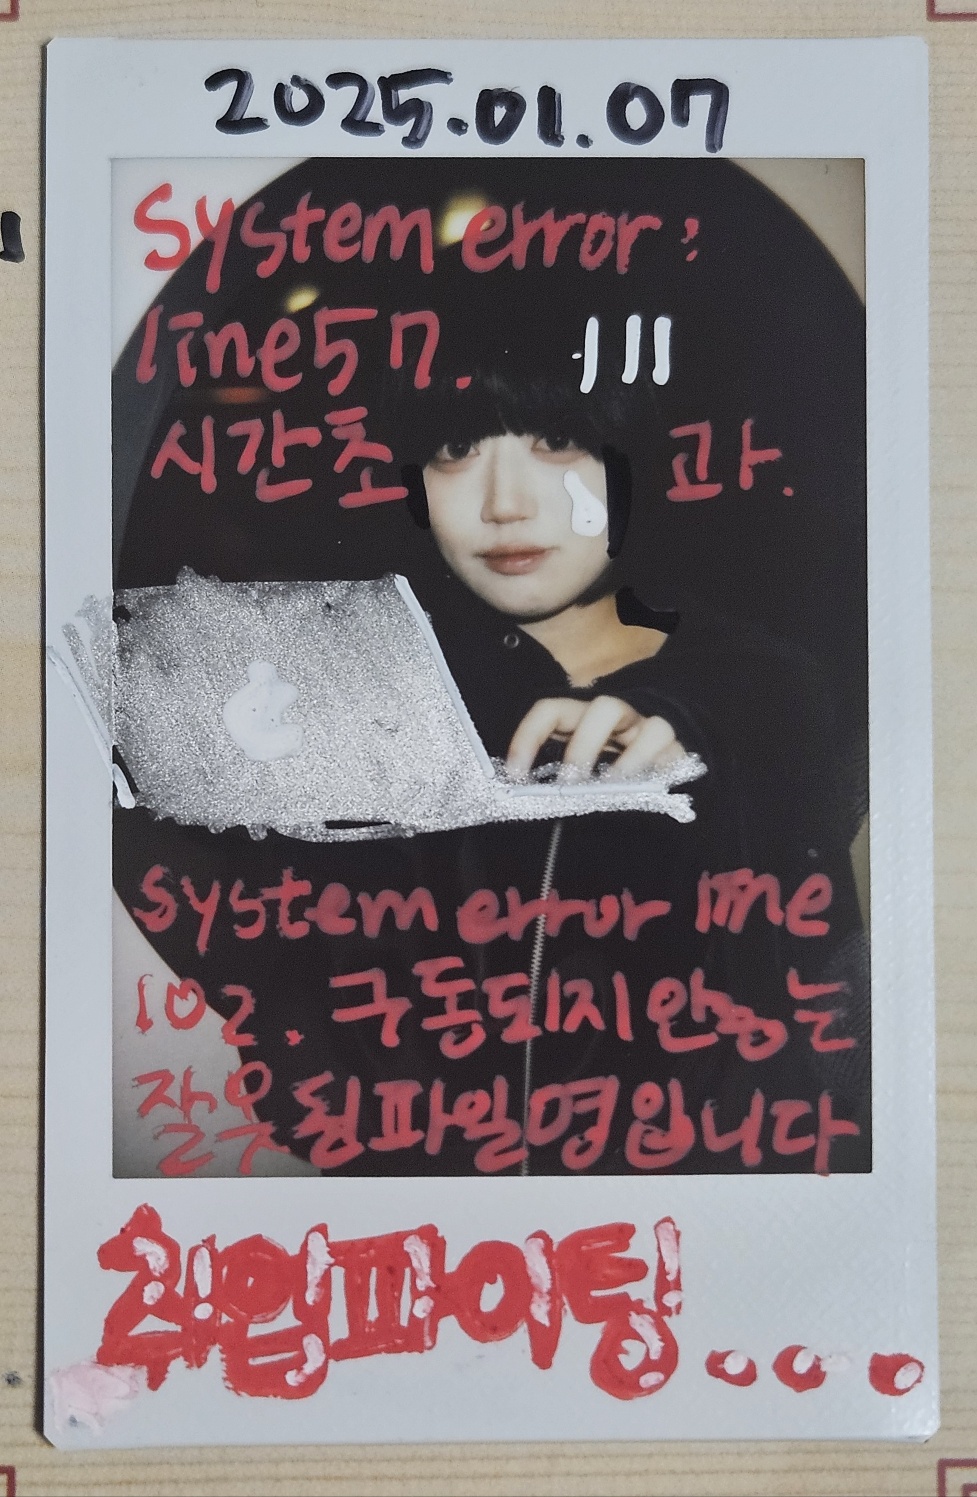 2025.01.07
System error:
line 57.
시간초과.
system error line
102. 구동되지 않는
잘못된 파일명입니다
취업파이팅...